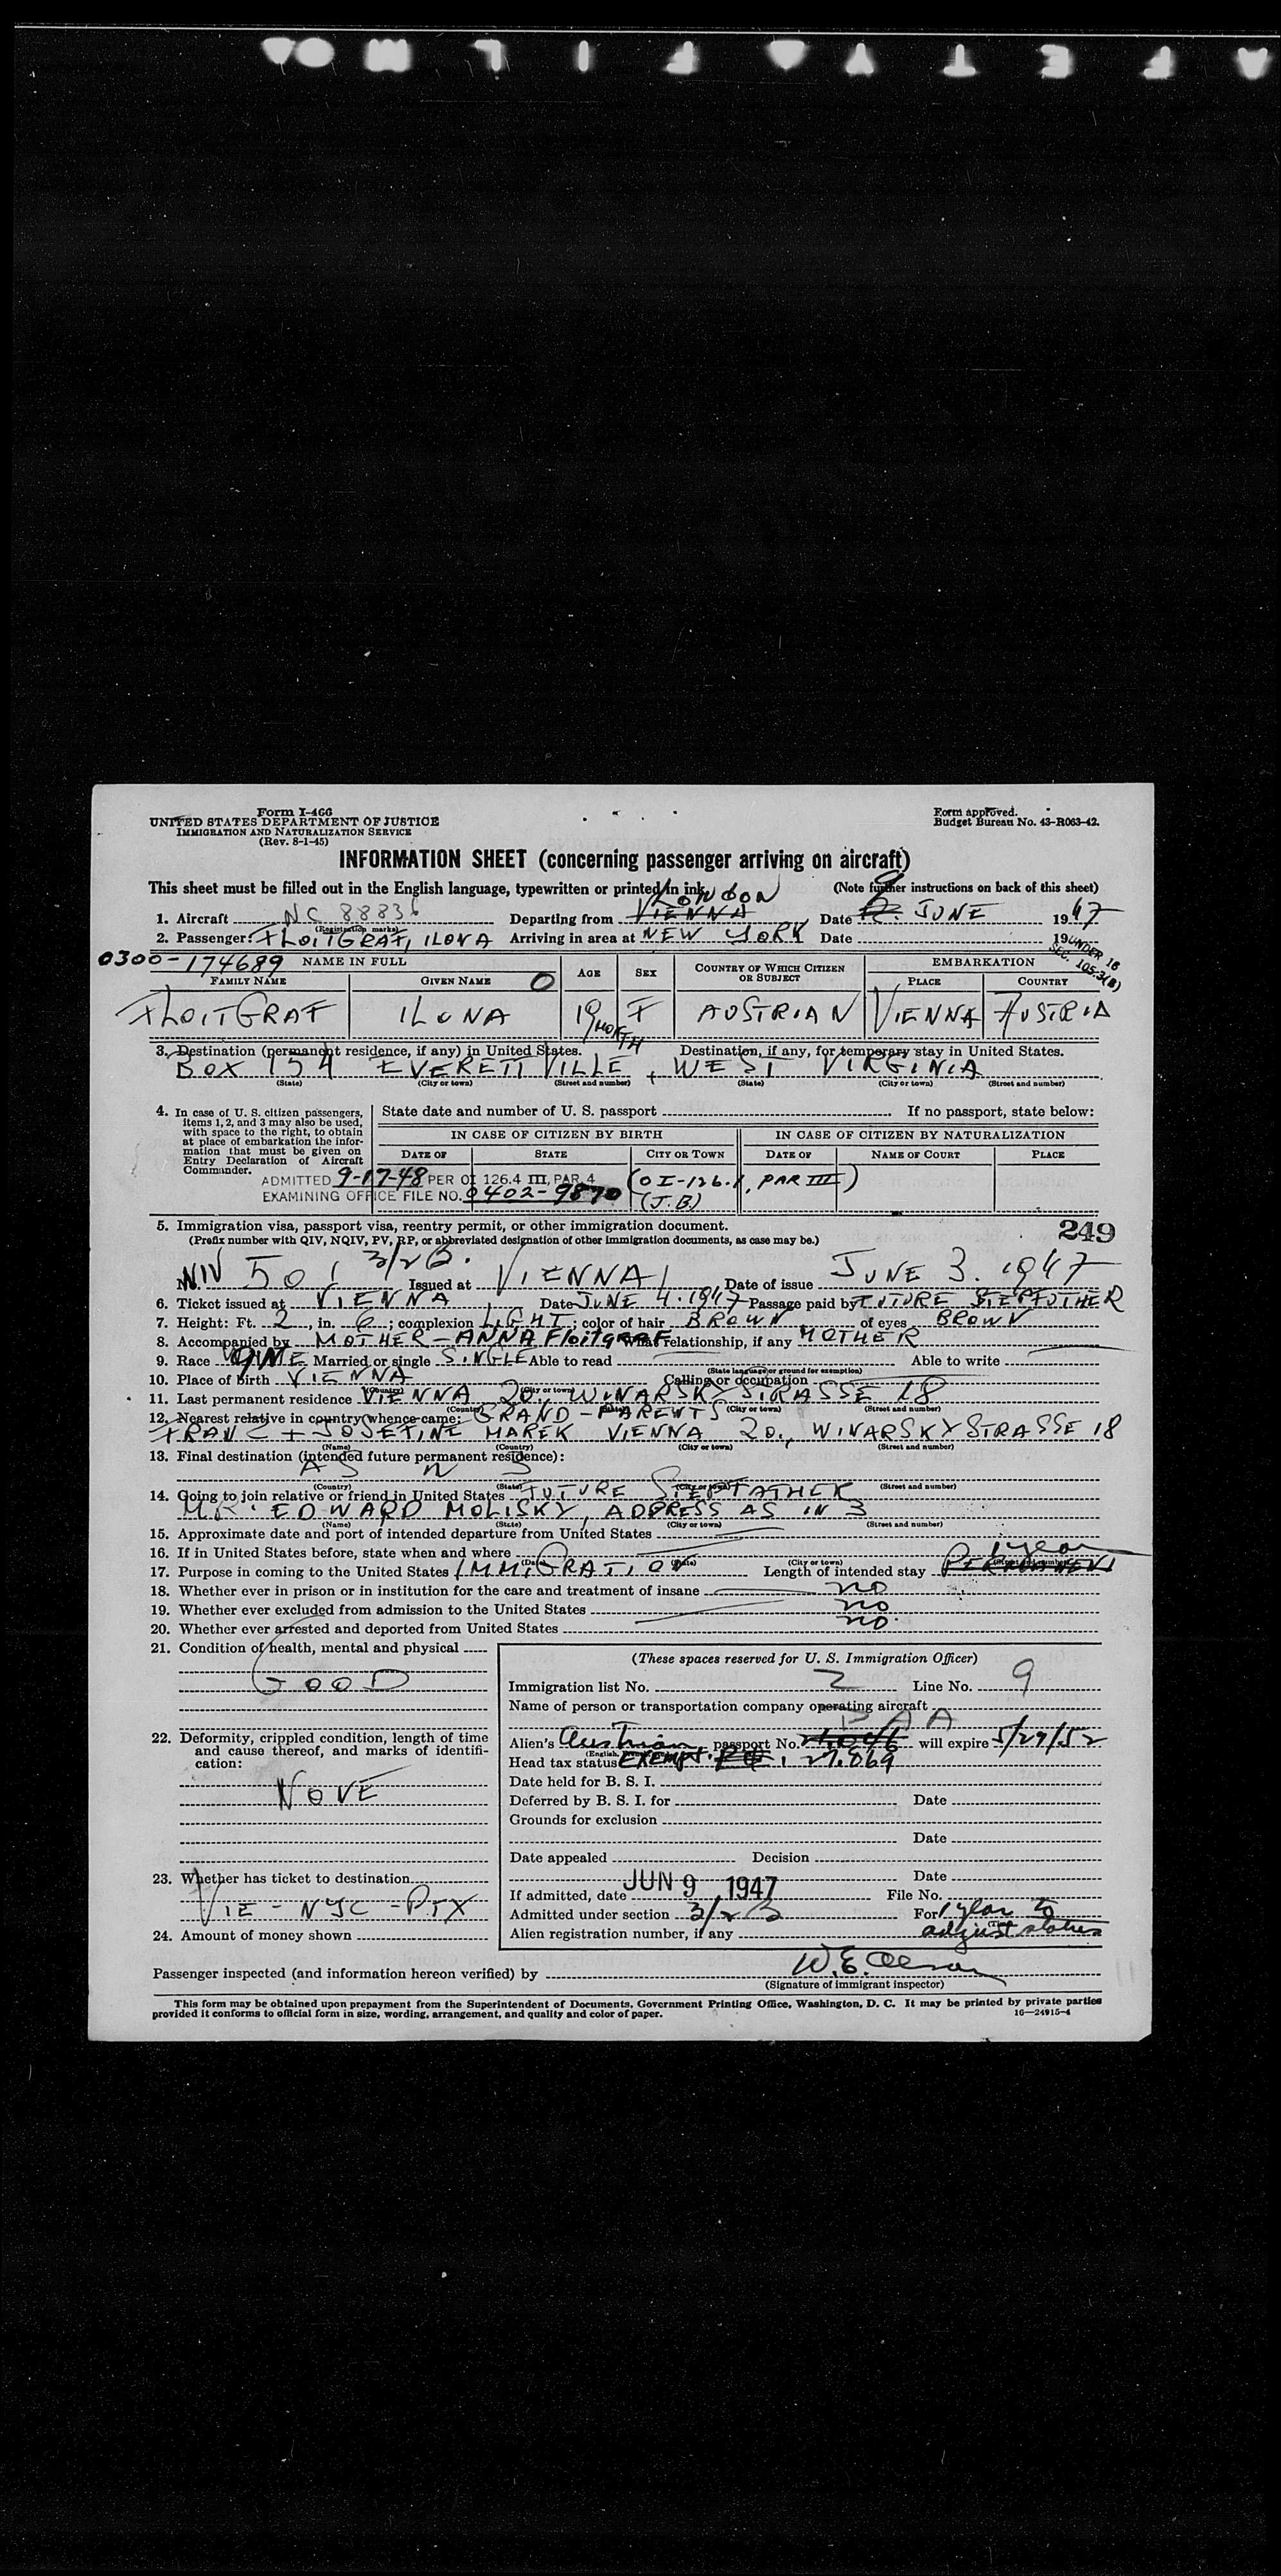 SAFETY FILM
Form I-466
UNITED STATES DEPARTMENT OF JUSTICE
IMMIGRATION AND NATURALIZATION SERVICE
(Rev. 8-1-45)
Form approved.
Budget Bureau No. 43-R063-42.
INFORMATION SHEET (concerning passenger arriving on aircraft)
This sheet must be filled out in the English language, typewritten or printed in ink. (Note further instructions on back of this sheet)
LONDON 9
1. Aircraft NC 88836 Departing from VIENNA Date JUNE 1947
(Registration marks)
2. Passenger: FLOITGRAF, ILONA Arriving in area at NEW YORK Date 19
UNDER 16
SEC. 105.3(B)
0300-174689 NAME IN FULL AGE SEX COUNTRY OF WHICH CITIZEN OR SUBJECT EMBARKATION
FAMILY NAME GIVEN NAME PLACE COUNTRY
FLOITGRAF ILONA 19 MONTH F AUSTRIAN VIENNA AUSTRIA
3. Destination (permanent residence, if any) in United States. Destination, if any, for temporary stay in United States.
BOX 154 EVERETTVILLE, WEST VIRGINIA
(State) (City or town) (Street and number) (State) (City or town) (Street and number)
4. In case of U. S. citizen passengers, items 1, 2, and 3 may also be used, with space to the right, to obtain at place of embarkation the information that must be given on Entry Declaration of Aircraft Commander.
State date and number of U. S. passport If no passport, state below:
IN CASE OF CITIZEN BY BIRTH IN CASE OF CITIZEN BY NATURALIZATION
DATE OF STATE CITY OR TOWN DATE OF NAME OF COURT PLACE
ADMITTED 9-17-48 PER OI 126.4 III, PAR 4 (OI-126.1, PAR III)
EXAMINING OFFICE FILE NO. 0402-9870 (J.B)
5. Immigration visa, passport visa, reentry permit, or other immigration document. 249
(Prefix number with QIV, NQIV, PV, RP, or abbreviated designation of other immigration documents, as case may be.)
3/2 B.
No. NIV 501 Issued at VIENNA Date of issue JUNE 3. 1947
6. Ticket issued at VIENNA Date JUNE 4. 1947 Passage paid by FUTURE STEPFUTHER
7. Height: Ft. 2, in. 6; complexion LIGHT; color of hair BROWN of eyes BROWN
8. Accompanied by MOTHER - ANNA Floitgraf What relationship, if any MOTHER
9. Race WHITE Married or single SINGLE Able to read Able to write
(State language or ground for exemption)
10. Place of birth VIENNA Calling or occupation
(Country) (City or town)
11. Last permanent residence VIENNA 20., WINARSKY STRASSE 18
(Country) (State) (City or town) (Street and number)
12. Nearest relative in country whence came: GRAND-PARENTS
FRANC + JOSEFINE MAREK VIENNA 20., WINARSKYSTRASSE 18
(Name) (Country) (City or town) (Street and number)
13. Final destination (intended future permanent residence):
AS IN 3
(Country) (State) (City or town) (Street and number)
14. Going to join relative or friend in United States FUTURE STEPFATHER
MR. EDWARD MOLISKY, ADDRESS AS IN 3
(Name) (State) (City or town) (Street and number)
15. Approximate date and port of intended departure from United States
16. If in United States before, state when and where
(Date) (Date) (City or town) (Street and number)
1 year
17. Purpose in coming to the United States IMMIGRATION Length of intended stay PERMANENT
18. Whether ever in prison or in institution for the care and treatment of insane no
19. Whether ever excluded from admission to the United States no
20. Whether ever arrested and deported from United States no.
21. Condition of health, mental and physical
GOOD
22. Deformity, crippled condition, length of time and cause thereof, and marks of identification:
NONE
23. Whether has ticket to destination
VIE - NYC - PTX
24. Amount of money shown
(These spaces reserved for U. S. Immigration Officer)
Immigration list No. 2 Line No. 9
Name of person or transportation company operating aircraft
P A A
Alien's Austrian passport No. will expire 5/29/52
Head tax status Exempt. 27.069
Date held for B. S. I.
Deferred by B. S. I. for Date
Grounds for exclusion
Date
Date appealed Decision
Date
If admitted, date JUN 9 1947 File No.
Admitted under section 3/2 B For 1 year to
Alien registration number, if any adjust status
Passenger inspected (and information hereon verified) by W. E. Olson
(Signature of immigrant inspector)
This form may be obtained upon prepayment from the Superintendent of Documents, Government Printing Office, Washington, D. C. It may be printed by private parties
provided it conforms to official form in size, wording, arrangement, and quality and color of paper. 16—24915-4